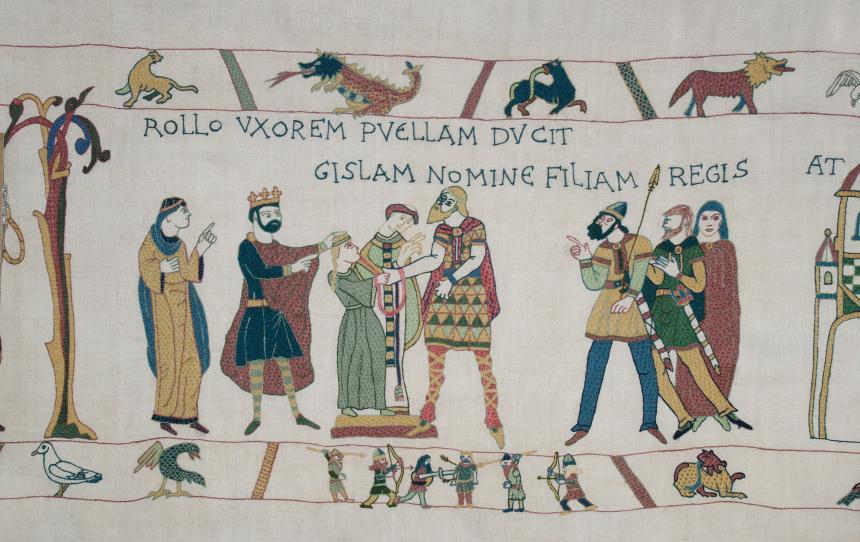 ROLLO VXOREM PVELLAM DVCIT
GISLAM NOMINE FILIAM REGIS
AT